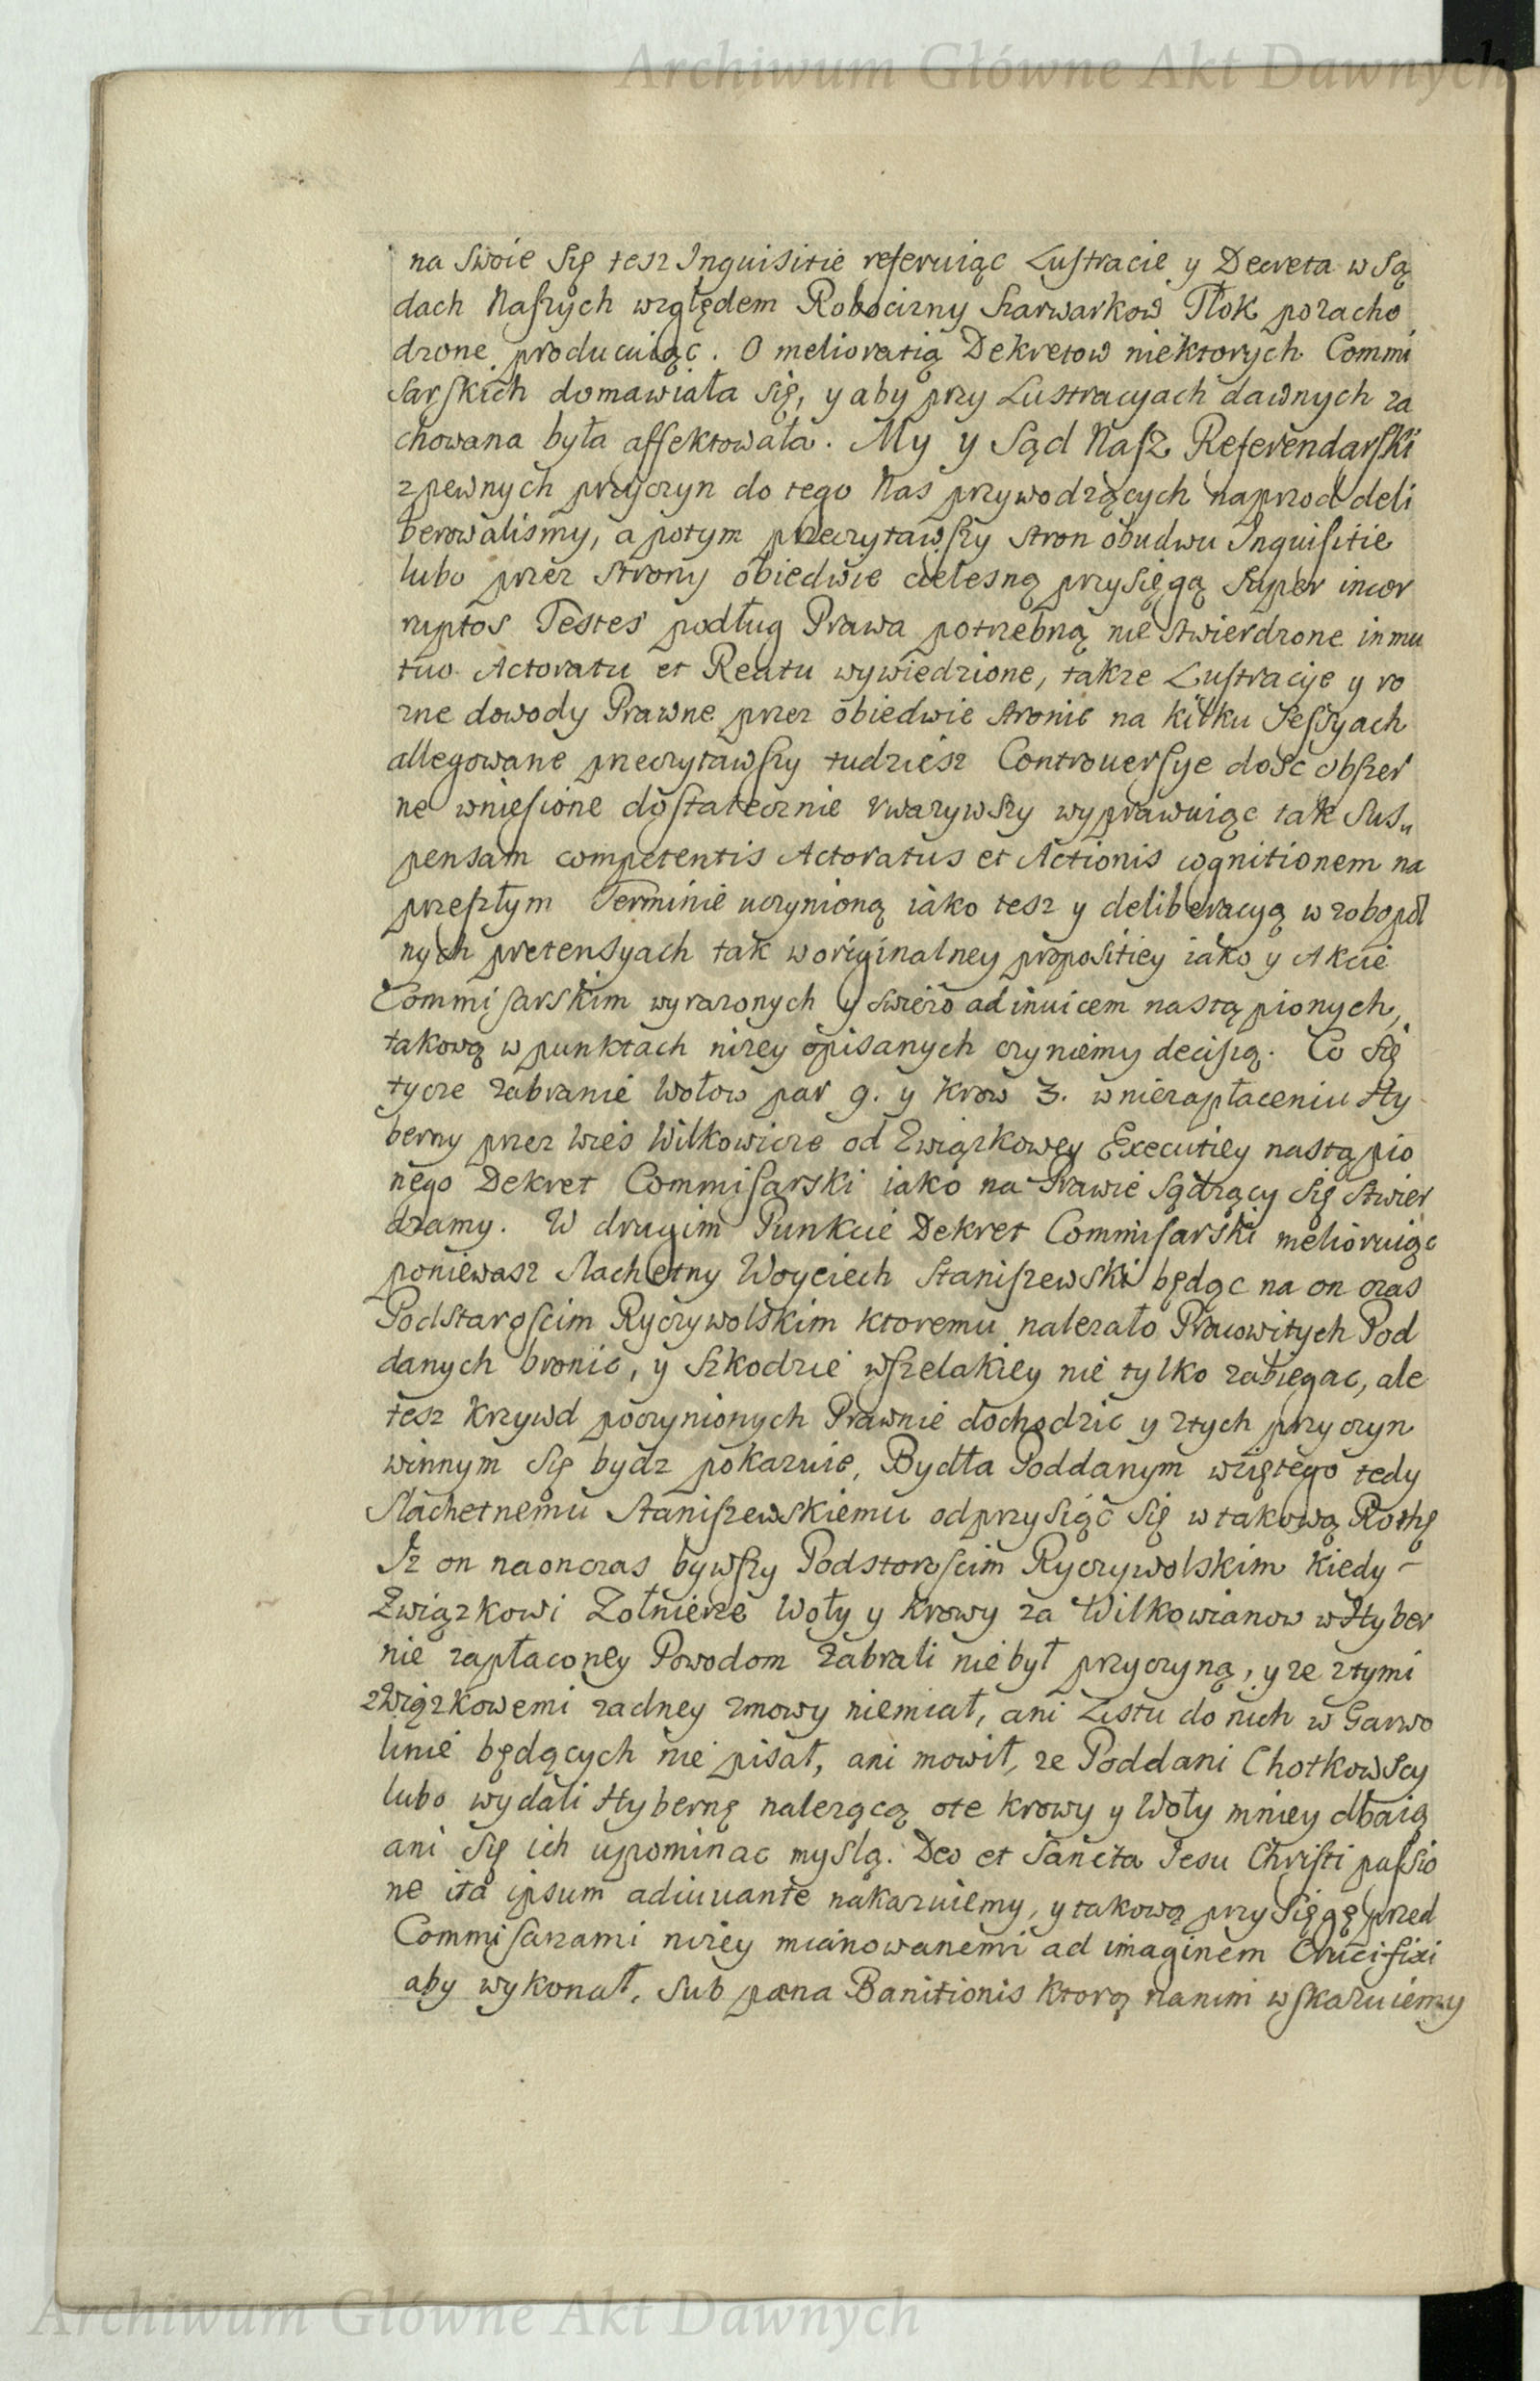 Archiwum Główne Akt Dawnych
na swoie się tesz Inquisitie referuiąc Lustracie y Decreta w Są
dach Naszych względem Robocizny Szarwarkow Tłok pozacho
dzone producuiąc. O melioratią Dekretow niektorych Commi
sarskich domawiała się, y aby przy Lustracyach dawnych za
chowana była affektowała. My y Sąd Nasz Referendarski
z pewnych przyczyn do tego Nas przywodzących naprzod deli
berowalismy, a potym przeczytawszy stron obudwu Inquisitie
lubo przez strony obiedwie cielesną przysięgą super incor
ruptos Testes podług Prawa potrzebną nie stwierdzone in mu
tuo Actoratu et Reatu wywiedzione, takze Lustracije y ro
zne dowody Prawne przez obiedwie stronie na kilku Sessyach
allegowane przeczytawszy tudziesz Controuersye dosc obszer
ne wniesione dostatecznie uwazywszy wyprawuiąc tak Sus„
pensam competentis Actoratus et Actionis cognitionem na
przeszłym Terminie uczynioną iako tesz y deliberacyą w zobopol
nych pretensyach tak w originalney propositiey iako y Akcie
Commisarskim wyrazonych y swiezo ad inuicem nastąpionych,
takową w punktach nizey opisanych czyniemy decisią. Co się
tycze zabranie Wołow par 9. y Krow 3. w niezapłaceniu Hy
berny przez Wies Wilkowicze od Związkowey Executiey nastąpio
nego Dekret Commisarski iako na Prawie sądzący się stwier
dzamy. W drugim Punkcie Dekret Commisarski melioruiąc
poniewasz Slachetny Woyciech Staniszewski będąc na on czas
Podstaroscim Ryczywolskim ktoremu nalezało Pracowitych Pod
danych bronic, y Szkodzie wszelakiey nie tylko zabiegac, ale
tesz krzywd poczynionych Prawnie dochodzic y z tych przyczyn
winnym się bydz pokazuie, Bydła Poddanym wziętego tedy
Slachetnemu Staniszewskiemu odprzysiąc się w takową Rothę
Iz on naonczas bywszy Podstoroscim Ryczywolskim kiedy –
Związkowi Zołnierze Woły y Krowy za Wilkowianow w Hyber
nie zapłaconey Powodom zabrali nie był przyczyną, y ze z tymi
związkowemi zadney zmowy niemiał, ani Listu do nich w Garwo
linie będących nie pisał, ani mowił, ze Poddani Chotkowscy
lubo wydali Hybernę nalezącą o te krowy y Woły mniey dbaią
ani się ich upominac myslą. Deo et Sancta Iesu Christi passio
ne ita ipsum adiuuante nakazuiemy, y takową przysięgę przed
Commisarzami nizey mianowanemi ad imaginem Crucifixi
aby wykonał, sub pæna Banitionis ktorą nanim wskazuiemy
Archiwum Główne Akt Dawnych